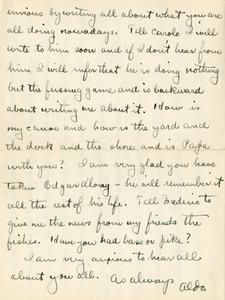 envious by writing all about what you are
all doing nowadays. Tell Carolo I will
write to him soon and if I don't hear from
him I will infer that he is doing nothing
but the fussing game and is backward
about writing me about it. How is
my canoe and how is the yard and
the dock and the shore and is Papa
with you? I am very glad you have
taken Edgar along - he will remember it
all the rest of his life. Tell Frederic to
give me the news from my friends the
fishes. Have you had bass or pike?
I am very anxious to hear all
about you all. As always Aldo